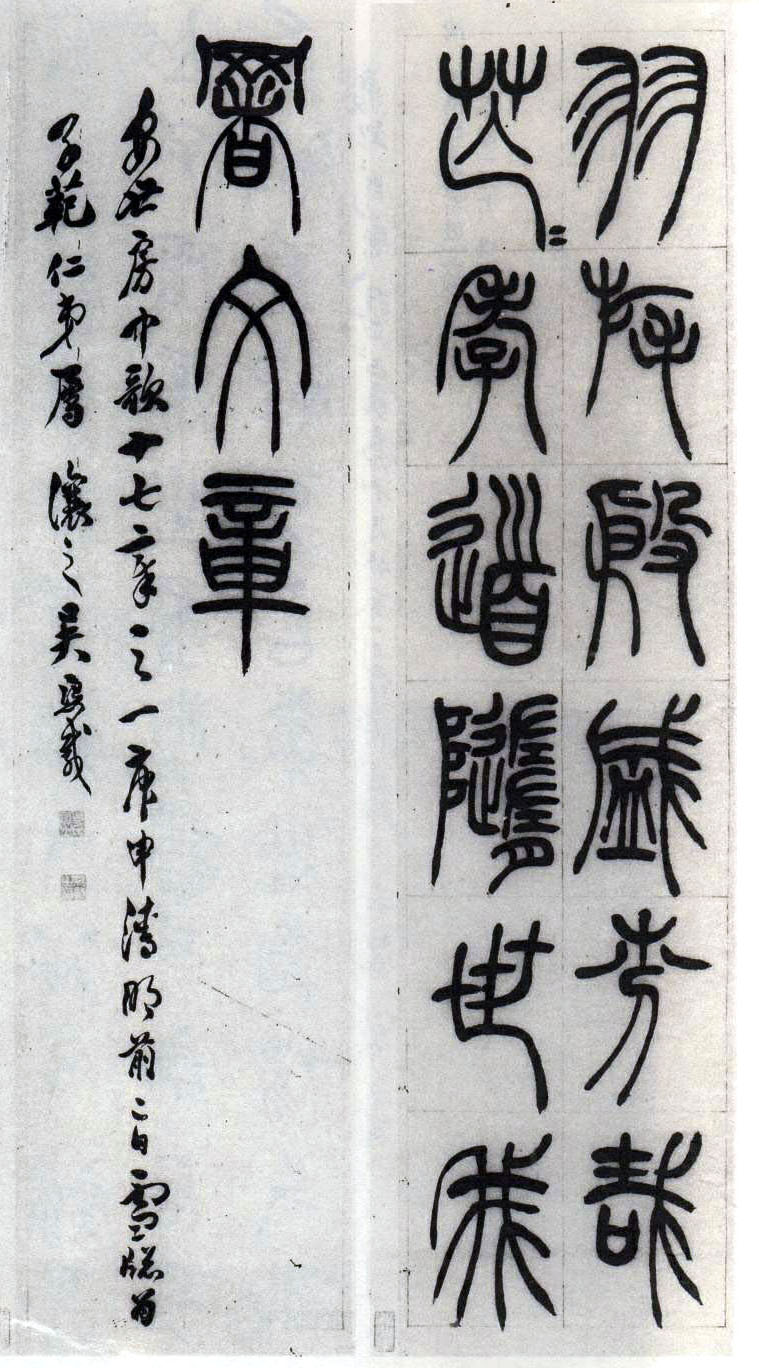 羽旄殷盛芬哉
芒〻孝道隨世我
署文章
安世房中歌十七章之一庚申清明前二日雪牕為
子範仁弟屬 讓之吳熙載